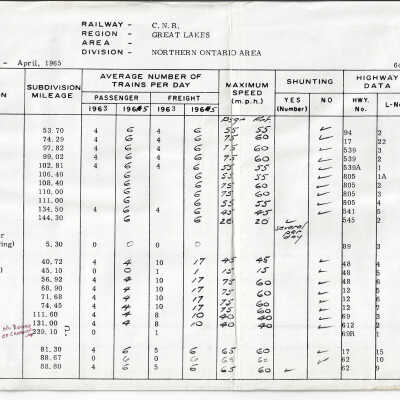 RAILWAY - C.N.R.
REGION - GREAT LAKES
AREA -
DIVISION - NORTHERN ONTARIO AREA
- April, 1965
SUBDIVISION MILEAGE AVERAGE NUMBER OF TRAINS PER DAY MAXIMUM SPEED (m.p.h.) SHUNTING HIGHWAY DATA
PASSENGER FREIGHT YES (Number) NO HWY. No. L-No
1963 1965 1963 1965
Psgr Frt
53.70 4 6 4 6 55 55 ✓ 94 2
74.29 4 6 4 6 75 60 ✓ 17 22
97.82 4 6 4 6 75 60 ✓ 539 3
99.02 4 6 4 6 75 60 ✓ 539 2
102.81 4 6 4 6 55 55 ✓ 539A 1
106.40 6 6 55 55 ✓ 805 1A
108.40 6 6 75 60 ✓ 805 2
110.00 6 6 75 60 ✓ 805 3
111.00 6 6 55 55 ✓ 805 4
134.50 4 6 4 6 45 45 ✓ 541 6
144.30 6 6 20 20 ✓ 545 2
several per day
5.30 0 0 0 0 89 3
40.72 4 4 10 17 45 45 ✓ 48 4
45.10 0 0 1 1 15 15 ✓ 48 5
56.92 4 4 10 17 75 60 ✓ 48 6
68.90 4 4 10 17 75 60 ✓ 12 5
71.68 4 4 10 17 75 60 ✓ 12 6
74.45 4 4 10 17 75 60 ✓ 12 7
111.60 4 4 8 10 40 40 ✓ 69 3
131.00 4 4 8 10 40 40 ✓ 612 2
239.10 0 1 69R 1
81.30 4 6 5 6 65 60 ✓ 17 15
88.67 0 0 0 0 ✓ 62 10
88.80 4 6 5 6 65 60 ✓ 62 9